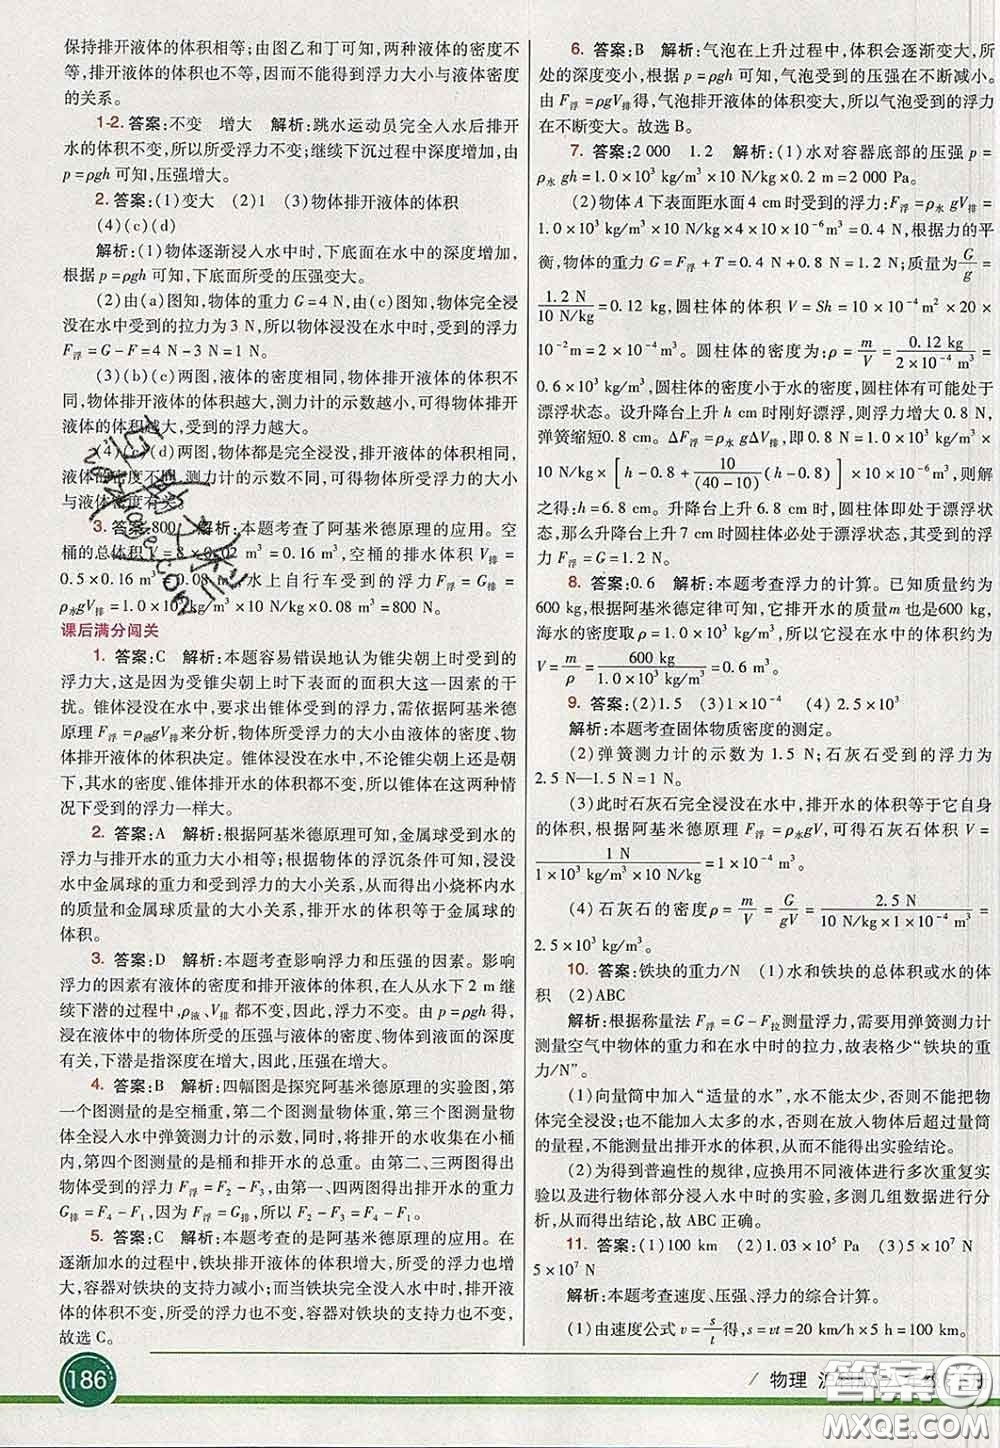 保持排开液体的体积相等;由图乙和丁可知,两种液体的密度不等,排开液体的体积也不等,因而不能得到浮力大小与液体密度
的关系。
1-2. 答案:不变 增大 解析:跳水运动员完全入水后排开
水的体积不变,所以所受浮力不变;继续下沉过程中深度增加,由
p=ρgh可知,压强增大。
2. 答案:(1)变大 (2)1 (3)物体排开液体的体积
(4)(c)(d)
解析:(1)物体逐渐浸入水中时,下底面在水中的深度增加,
根据p=ρgh可知,下底面所受的压强变大。
(2)由(a)图知,物体的重力G=4 N,由(c)图知,物体完全浸
没在水中受到的拉力为3 N,所以物体浸没在水中时,受到的浮力
F浮=G-F=4 N-3 N=1 N。
(3)(b)(c)两图,液体的密度相同,物体排开液体的体积不
同,物体排开液体的体积越大,测力计的示数越小,可得物体排开
液体的体积越大,受到的浮力越大。
(4)(c)(d)两图,物体都是完全浸没,排开液体的体积相同,
液体的密度不同,测力计的示数不同,可得物体所受浮力的大小
与液体密度有关。
3. 答案:800 解析:本题考查了阿基米德原理的应用。空
桶的总体积V=8×0.02 m³=0.16 m³,空桶的排水体积V排=
0.5×0.16 m³=0.08 m³,水上自行车受到的浮力F浮=G排=
ρ水gV排=1.0×10³ kg/m³×10 N/kg×0.08 m³=800 N。
课后满分闯关
1. 答案:C 解析:本题容易错误地认为锥尖朝上时受到的
浮力大,这是因为受锥尖朝上时下表面的面积大这一因素的干
扰。锥体浸没在水中,要求出锥体受到的浮力,需依据阿基米德
原理F浮=ρ液gV排来分析,物体所受浮力的大小由液体密度与排
开液体的体积决定。锥体浸没在水中,不论锥尖朝上还是朝下,
其水的密度、锥体排开水的体积都不变,因此,锥体在这两种情
况下受到的浮力一样大。
2. 答案:A 解析:根据阿基米德原理可知,金属球受到水的
浮力与排开水的重力大小相等;根据物体的浮沉条件可知,浸没
水中金属球的重力和受到浮力的大小关系,从而得出小烧杯内水
的质量和金属球质量的大小关系,排开水的体积等于金属球的
体积。
3. 答案:D 解析:本题考查影响浮力和压强的因素。影响
浮力的因素有液体的密度和排开液体的体积。在人从水下2 m继
续下潜的过程中,ρ液、V排都不变,因此,浮力不变。由p=ρgh得,
浸在液体中的物体所受的压强与液体的密度、物体到液面的深度
有关,下潜是指深度在增大,因此,压强在增大。
4. 答案:B 解析:四幅图是探究阿基米德原理的实验图,第
一个图测量的是空桶重,第二个图测量物体重,第三个图测量物
体全浸入水中弹簧测力计的示数,同时,将排开的水收集在小桶
内,第四个图测量的是桶和排开水的总重。由第二、三两图得出
物体受到的浮力F浮=F2-F3,由第一、四两图得出排开水的重力
G排=F4-F1,因为F浮=G排,所以F2-F3=F4-F1。
5. 答案:C 解析:本题考查的是阿基米德原理的应用。在
逐渐加水的过程中,铁块排开液体的体积增大,所受的浮力也增
大,容器对铁块的支持力减小;而当铁块完全没入水中时,排开液
体的体积不变,所受的浮力也不变,容器对铁块的支持力也不变,
故选C。
6. 答案:B 解析:气泡在上升过程中,体积会逐渐变大,所
处的深度变小,根据p=ρgh可知,气泡受到的压强在不断减小。
由F浮=ρgV排得,气泡排开液体的体积变大,气泡受到的浮力
在不断变大。故选B。
7. 答案:2 000 1.2 解析:(1)水对容器底部的压强p=
ρ水gh=1.0×10³ kg/m³×10 N/kg×0.2 m=2 000 Pa。
(2)物体A下表面距水面4 cm时受到的浮力:F浮=ρ水gV排=
1.0×10³ kg/m³×10 N/kg×4×10×10⁻⁶ m³=0.4 N;根据力的平
衡,物体的重力G=F浮+T=0.4 N+0.8 N=1.2 N;质量为G/g=
1.2 N/10 N/kg=0.12 kg,圆柱体的体积V=Sh=10×10⁻⁴ m²×20×
10⁻²m=2×10⁻⁴ m³。圆柱体的密度为:ρ=m/V=0.12 kg/2×10⁻⁴ m³=
0.6×10³ kg/m³,圆柱体的密度小于水的密度,圆柱体有可能处于
漂浮状态。设升降台上升h cm时刚好漂浮,则浮力增大0.8 N,
弹簧缩短0.8 cm。ΔF浮=ρ水gΔV排,即0.8 N=1.0×10³ kg/m³×
10 N/kg×[h-0.8+10/(40-10)(h-0.8)]×10×10⁻⁶ m³,则解
之得:h=6.8 cm。升降台上升6.8 cm时,圆柱体即处于漂浮状
态,那么升降台上升7 cm时圆柱体必处于漂浮状态,其受到的浮
力F浮=G=1.2 N。
8. 答案:0.6 解析:本题考查浮力的计算。已知质量约为
600 kg,根据阿基米德定律可知,它排开水的质量m也是600 kg,
海水的密度取ρ=1.0×10³ kg/m³,所以它浸在水中的体积约为
V=m/ρ=600 kg/1.0×10³ kg/m³=0.6 m³。
9. 答案:(2)1.5 (3)1×10⁻⁴ (4)2.5×10³
解析:本题考查固体物质密度的测定。
(2)弹簧测力计的示数为1.5 N;石灰石受到的浮力为
2.5 N—1.5 N=1 N。
(3)此时石灰石完全浸没在水中,排开水的体积等于它自身
的体积。根据阿基米德原理F浮=ρ水gV,可得石灰石体积V=
1 N/1×10³ kg/m³×10 N/kg=1×10⁻⁴ m³。
(4)石灰石的密度ρ=m/V=G/gV=2.5 N/10 N/kg×1×10⁻⁴ m³=
2.5×10³ kg/m³。
10. 答案:铁块的重力/N (1)水和铁块的总体积或水的体
积 (2)ABC
解析:根据称量法F浮=G-F拉测量浮力,需要用弹簧测力计
测量空气中物体的重力和在水中时的拉力,故表格少“铁块的重
力/N”。
(1)向量筒中加入“适量的水”,水不能太少,否则不能把物
体完全浸没;也不能加入太多的水,否则在放入物体后超过量筒
的量程,不能测量出排开水的体积,从而不能得出实验结论。
(2)为得到普遍性的规律,应换用不同液体进行多次重复实
验以及进行物体部分浸入水中时的实验,多测几组数据进行分
析,从而得出结论,故ABC正确。
11. 答案:(1)100 km (2)1.03×10⁵ Pa (3)5×10⁷ N
5×10⁷ N
解析:本题考查速度、压强、浮力的综合计算。
(1)由速度公式v=s/t得,s=vt=20 km/h×5 h=100 km。
186
物理
答案圈
MXQE.COM